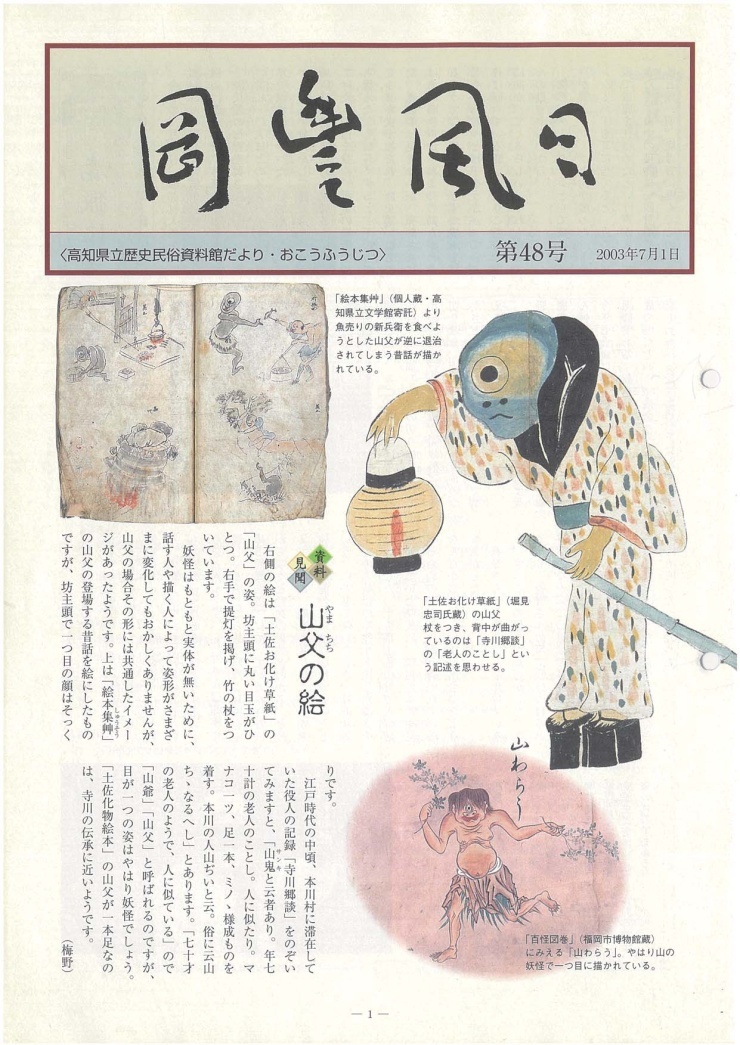 岡豊風日
〈高知県立歴史民俗資料館だより・おこうふうじつ〉
第48号
2003年7月1日
「絵本集艸」（個人蔵・高
知県立文学館寄託）より
魚売りの新兵衛を食べよ
うとした山父が逆に退治
されてしまう昔話が描か
れている。
「土佐お化け草紙」（堀見
忠司氏蔵）の山父
杖をつき、背中が曲がっ
ているのは「寺川郷談」
の「老人のことし」とい
う記述を思わせる。
資料
見聞
山父の絵
やま ちち
右側の絵は「土佐お化け草紙」の
「山父」の姿。坊主頭に丸い目玉がひ
とつ。右手で提灯を掲げ、竹の杖をつ
いています。
妖怪はもともと実体が無いために、
話す人や描く人によって姿形がさまざ
まに変化してもおかしくありませんが、
山父の場合その形には共通したイメー
ジがあったようです。上は「絵本集艸」
しゅうぞう
の山父の登場する昔話を絵にしたもの
ですが、坊主頭で一つ目の顔はそっく
りです。
江戸時代の中頃、本川村に滞在して
いた役人の記録「寺川郷談」をのぞい
てみますと、「山鬼と云者あり。年七
サンキ
十計の老人のことし。人に似たり。マ
ナコ一ツ、足一本、ミノヽ様成ものを
着す。本川の人山ぢいと云。俗に云山
ちゝなるへし」とあります。「七十才
の老人のようで、人に似ている」ので
「山爺」「山父」と呼ばれるのですが、
目が一つの姿はやはり妖怪でしょう。
「土佐化物絵本」の山父が一本足なの
は、寺川の伝承に近いようです。
（梅野）
山わらう
「百怪図巻」（福岡市博物館蔵）
にみえる「山わらう」。やはり山の
妖怪で一つ目に描かれている。
― 1 ―